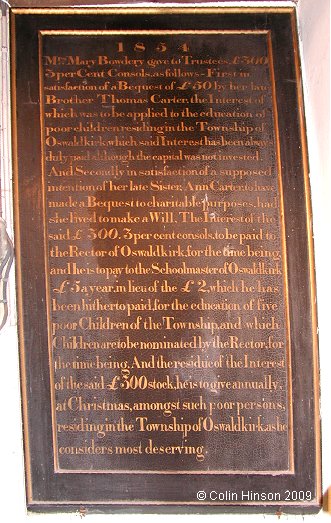 1854
Mrs. Mary Bowdery gave to Trustees, £300
3 per Cent Consols, as follows - First in
satisfaction of a Bequest of £50 by her late
Brother Thomas Carter, the Interest of
which was to be applied to the education of
poor children residing in the Township of
Oswaldkirk, which said Interest has been always
duly paid although the capital was not invested.
And Secondly in satisfaction of a supposed
intention of her late Sister, Ann Carter, to have
made a Bequest to charitable purposes, had
she lived to make a Will. The Interest of the
said £300. 3 per cent consols, to be paid to
the Rector of Oswaldkirk, for the time being,
and he is to pay to the Schoolmaster of Oswaldkirk
£5 a year, in lieu of the £2, which he has
been hitherto paid, for the education of five
poor Children of the Township, and which
Children are to be nominated by the Rector, for
the time being. And the residue of the Interest
of the said £300 stock, he is to give annually,
at Christmas, amongst such poor persons,
residing in the Township of Oswaldkirk, as he
considers most deserving.
©Colin Hinson 2009